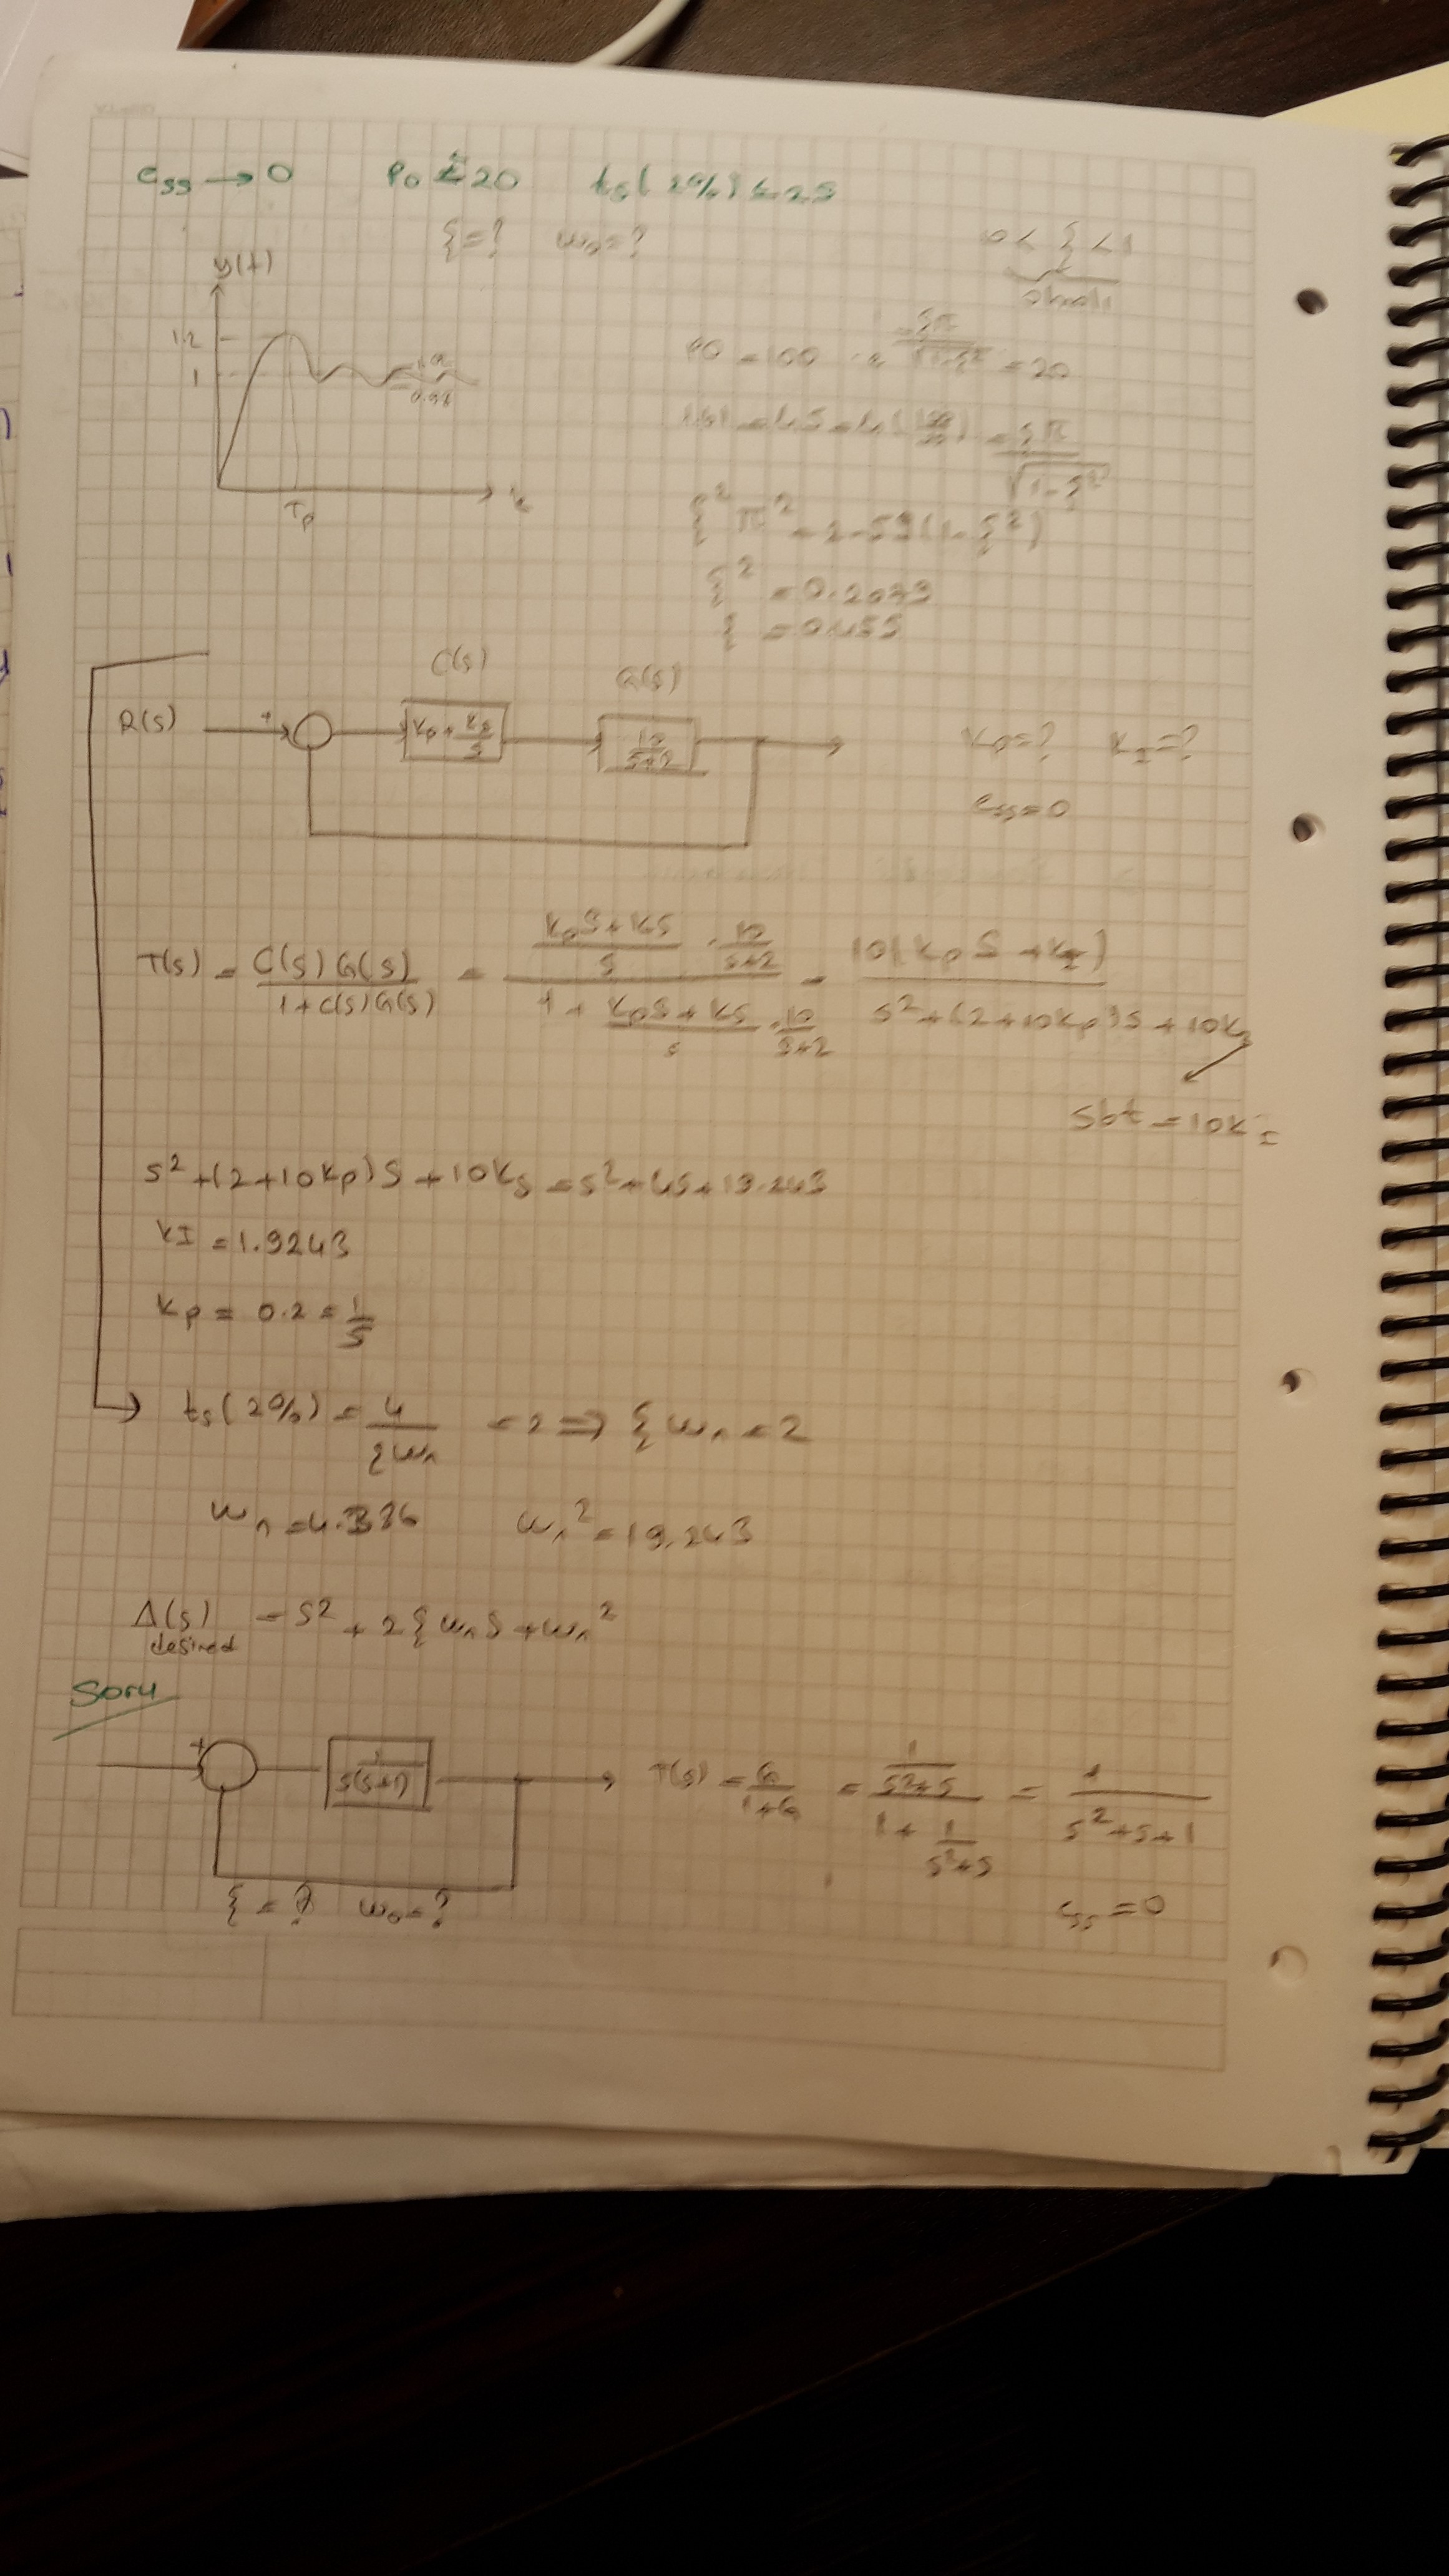 ess → 0    PO ≤ 20    ts(2%) ≤ 2s
ξ=?    ωn=?    0 < ξ < 1
olmalı
y(t)
1.2
1
0.98
Tp
t
PO = 100 · e^(-ξπ/√(1-ξ²)) = 20
= ln5 = ln(100/20) = ξπ/√(1-ξ²)
ξ²π² = 2.59(1-ξ²)
ξ² = 0.2079
ξ = 0.455
C(s)    G(s)
R(s)    +    Kp + KI/s    10/(s+2)    Kp=?    KI=?
ess=0
T(s) = C(s)G(s)/(1+C(s)G(s)) = ((KpS+KI)/s · 10/(s+2))/(1 + (KpS+KI)/s · 10/(s+2)) = 10(KpS+KI)/(s²+(2+10Kp)s+10KI)
sbt = 10KI
s²+(2+10Kp)s+10KI = s²+4s+19.243
KI = 1.9243
Kp = 0.2 = 1/5
ts(2%) = 4/(ξωn) = 2 ⇒ ξωn = 2
ωn = 4.386    ωn² = 19.243
Δ(s) = s² + 2ξωns + ωn²
desired
Soru
+    1/(s(s+1))    T(s) = G/(1+G) = (1/(s²+s))/(1 + 1/(s²+s)) = 1/(s²+s+1)
ξ = ?    ωn=?    ess = 0